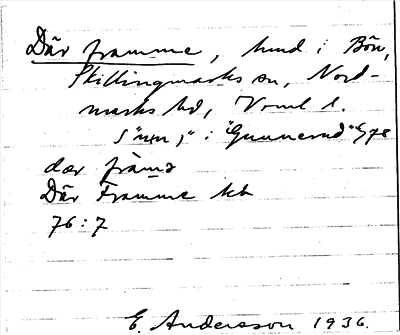 Där framme, hmd i Bön,
Skillingmarks sn, Nord-
marks hd, Vrml l.
i "Gunnerud" G78
dær fràmə
Där Framme kb
76:7
E. Andersson 1936.